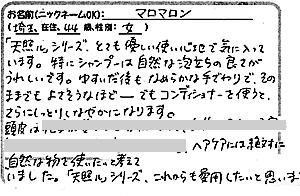 お名前(ニックネームOK): マロマロン
(埼玉 在住、44 歳、性別: 女 )
「天照ル」シリーズ、とても優しい使い心地で気に入って
います。特にシャンプーは自然な泡立ちの良さが
うれしいです。ゆすいだ後もなめらかな手ざわりで、その
ままでもよさそうなほど― でもコンディショナーを使うと、
さらにしっとりしなやかになります。
頭皮は
ヘアケアには絶対に
自然な物を使いたいと考えて
いました。「天照ル」シリーズ、これからも愛用したいと思います